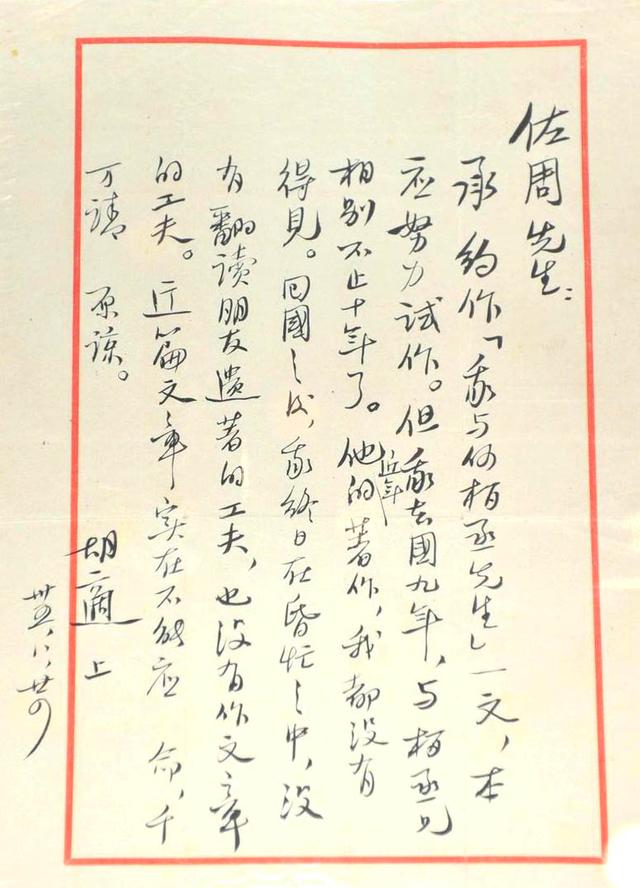 佐周先生：
承 約作「我与何柏丞先生」一文，本
应努力試作。但我去國九年，与柏丞兄
相别不止十年了。他的近年著作，我都没有
得見。回國之後，我終日在昏忙之中，没
有翻读朋友遺著的工夫，也没有作文章
的工夫。这篇文章实在不能应 命，千
万請 原諒。
胡適上
卅五，八，廿四